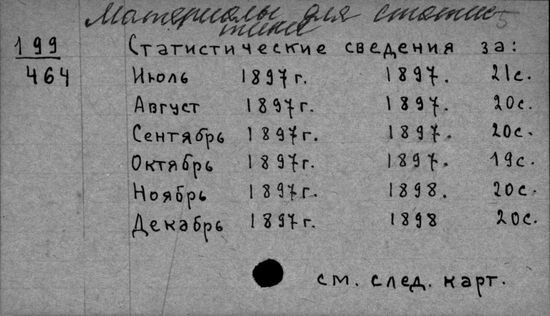 Материалы для статис
тики 5
199 Статистические сведения за:
464 Июль 1897г. 1897. 21с.
Август 1897г. 1897. 20с.
Сентябрь 1897г. 1897. 20с.
Октябрь 1897г. 1897. 19с.
Ноябрь 1897г. 1898. 20с.
Декабрь 1897г. 1898 20с.
см. след. карт.